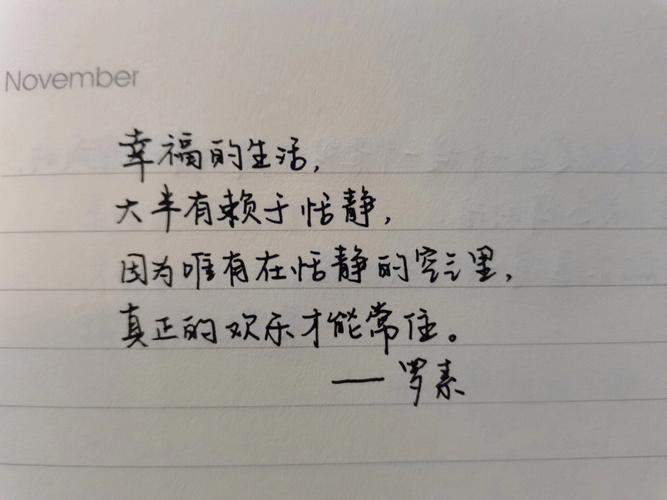 November
幸福的生活，
大半有赖于恬静，
因为唯有在恬静的空气里，
真正的欢乐才能常住。
——罗素